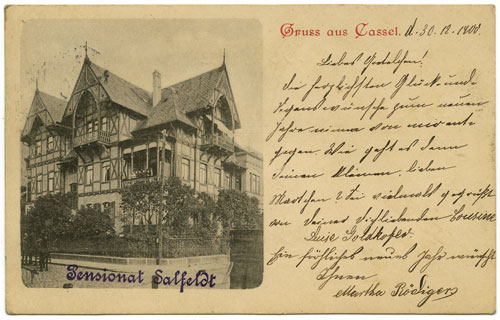 Gruss aus Cassel. d. 30.12.1900.
Liebes Gretelchen!
Die herzlichsten Glück- und
Segenswünsche zum neuen
Jahre nimm von mir ent-
gegen. Wie geht es denn
Deinem kleinen, lieben
Mariechen? Sei vielmals gegrüßt
von Deiner Dichliebenden Cousine
Luise Goldkofler
Ein fröhliches neues Jahr wünscht
Ihnen
Martha Rödiger
Pensionat Salfeldt